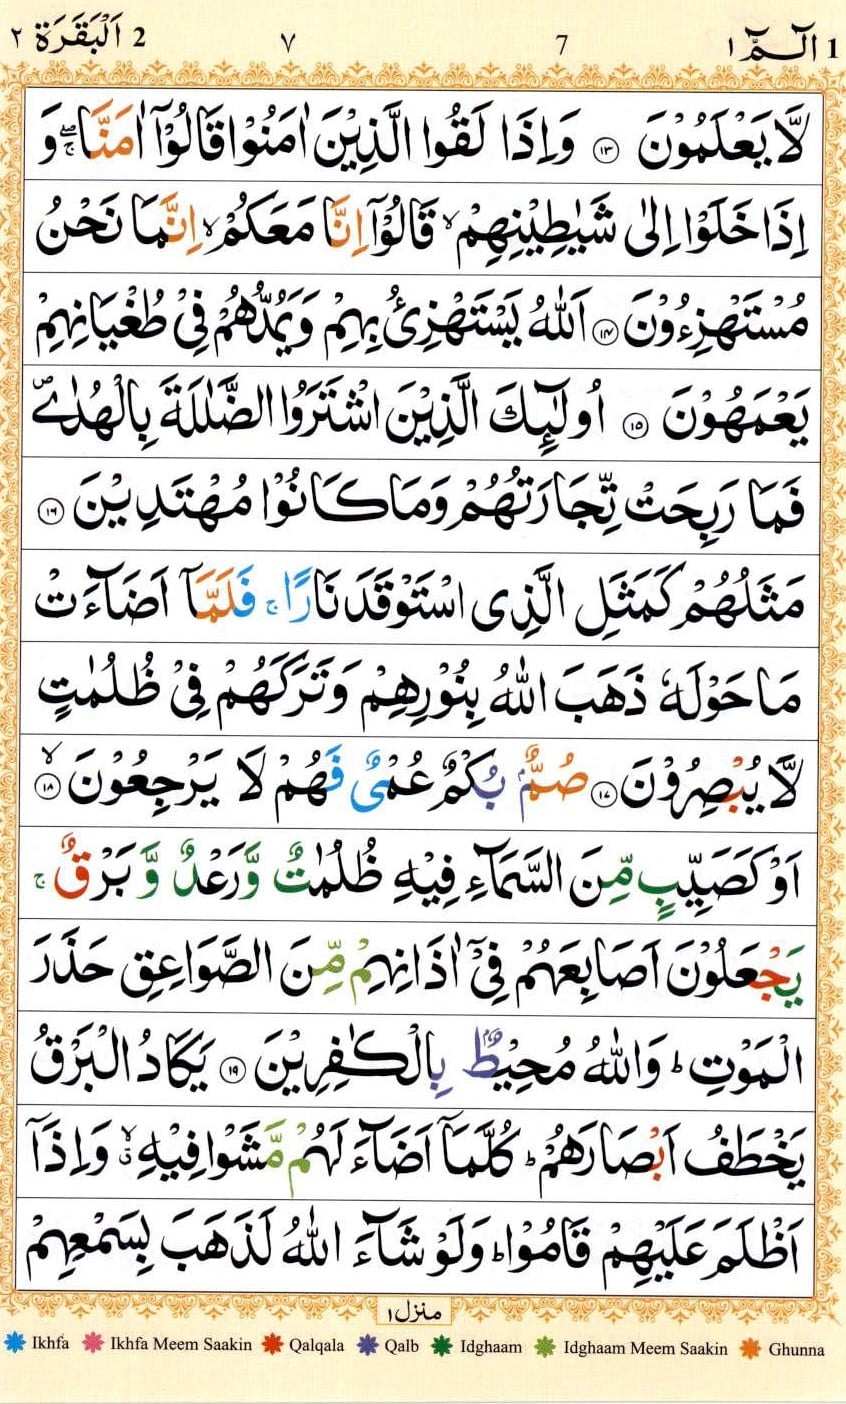 1 الٓمّٓ ١ 7 ٧ 2 اَلْبَقَرَة ٢
لَّا يَعْلَمُوْنَ ﴿۱۳﴾ وَاِذَا لَقُوا الَّذِيْنَ اٰمَنُوْا قَالُوْۤا اٰمَنَّا ۚۖ وَ
اِذَا خَلَوْا اِلٰى شَيٰطِيْنِهِمْ ۙ قَالُوْۤا اِنَّا مَعَكُمْ ۙ اِنَّمَا نَحْنُ
مُسْتَهْزِءُوْنَ ﴿۱۴﴾ اَللّٰهُ يَسْتَهْزِئُ بِهِمْ وَيَمُدُّهُمْ فِيْ طُغْيَانِهِمْ
يَعْمَهُوْنَ ﴿۱۵﴾ اُولٰٓئِكَ الَّذِيْنَ اشْتَرَوُا الضَّلٰلَةَ بِالْهُدٰى ۪
فَمَا رَبِحَتْ تِّجَارَتُهُمْ وَمَا كَانُوْا مُهْتَدِيْنَ ﴿۱۶﴾
مَثَلُهُمْ كَمَثَلِ الَّذِى اسْتَوْقَدَ نَارًا ۚ فَلَمَّاۤ اَضَآءَتْ
مَا حَوْلَهٗ ذَهَبَ اللّٰهُ بِنُوْرِهِمْ وَتَرَكَهُمْ فِيْ ظُلُمٰتٍ
لَّا يُبْصِرُوْنَ ﴿۱۷﴾ صُمٌّۢ بُكْمٌ عُمْيٌ فَهُمْ لَا يَرْجِعُوْنَ ﴿۱۸﴾ ۙ
اَوْ كَصَيِّبٍ مِّنَ السَّمَآءِ فِيْهِ ظُلُمٰتٌ وَّرَعْدٌ وَّبَرْقٌ ۚ
يَجْعَلُوْنَ اَصَابِعَهُمْ فِيْۤ اٰذَانِهِمْ مِّنَ الصَّوَاعِقِ حَذَرَ
الْمَوْتِ ؕ وَاللّٰهُ مُحِيْطٌۢ بِالْكٰفِرِيْنَ ﴿۱۹﴾ يَكَادُ الْبَرْقُ
يَخْطَفُ اَبْصَارَهُمْ ؕ كُلَّمَاۤ اَضَآءَ لَهُمْ مَّشَوْا فِيْهِ ۙۗ وَاِذَاۤ
اَظْلَمَ عَلَيْهِمْ قَامُوْا ؕ وَلَوْ شَآءَ اللّٰهُ لَذَهَبَ بِسَمْعِهِمْ
منزل ١
Ikhfa Ikhfa Meem Saakin Qalqala Qalb Idghaam Idghaam Meem Saakin Ghunna